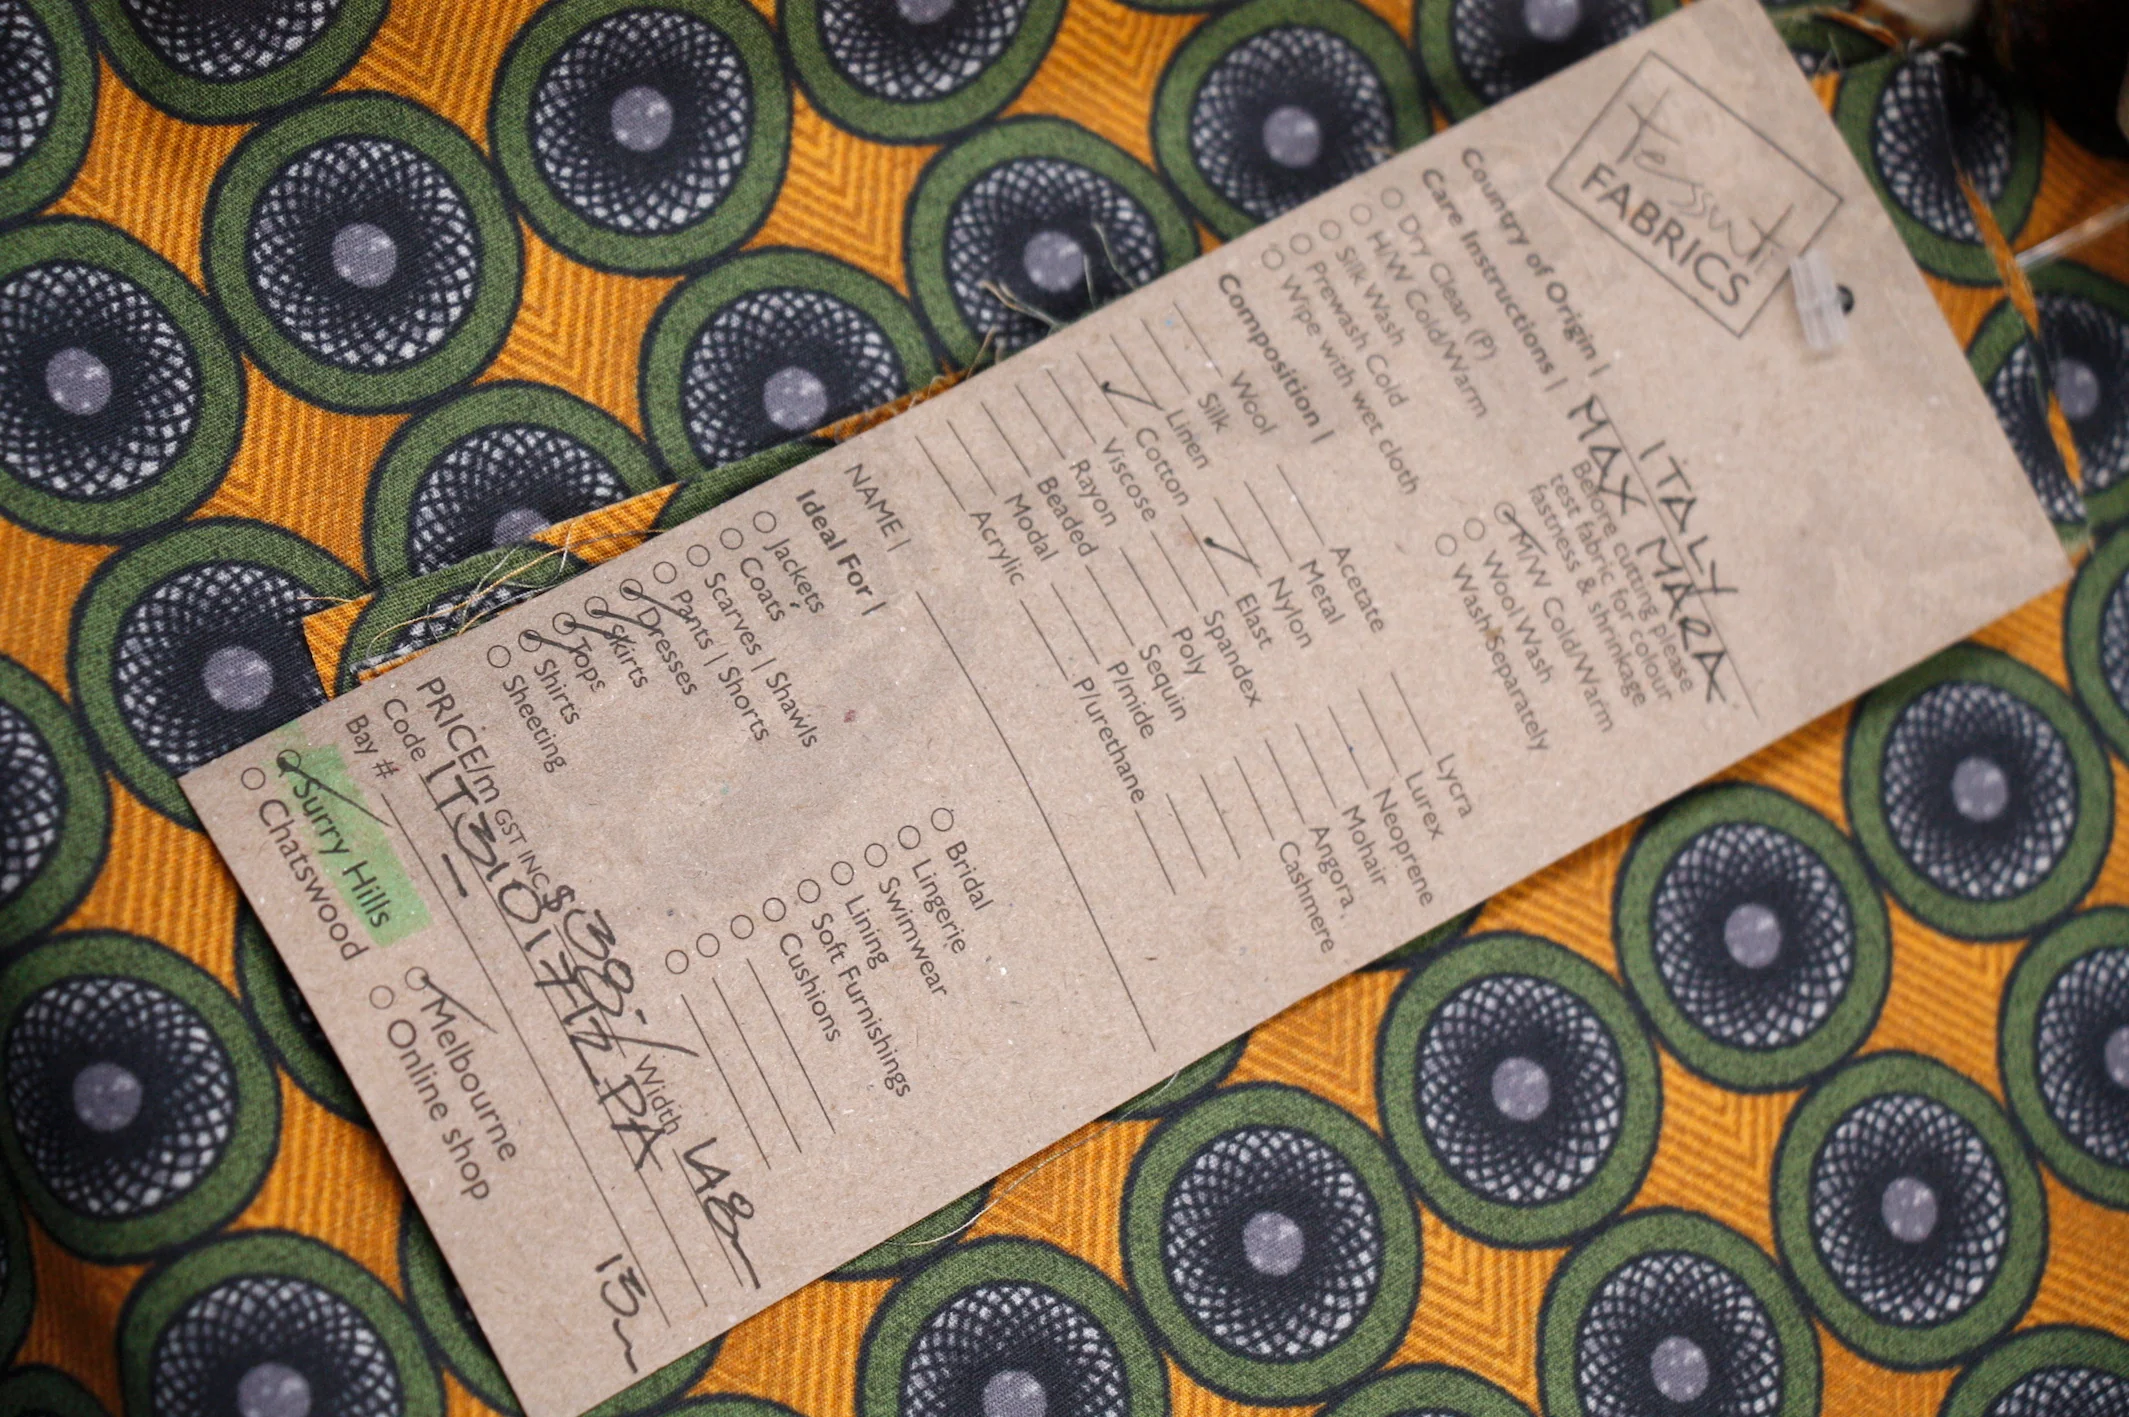 tessuti
FABRICS
Country of Origin | ITALY
MAX MARA
Care Instructions | Before cutting please
test fabric for colour
fastness & shrinkage
Dry Clean (P)
H/W Cold/Warm
Silk Wash
Prewash Cold
Wipe with wet cloth
M/W Cold/Warm
Wool Wash
Wash Separately
Composition |
Wool
Silk
Linen
Cotton
Viscose
Rayon
Beaded
Modal
Acrylic
Acetate
Metal
Nylon
Elast
Spandex
Poly
Sequin
P/mide
P/urethane
Lycra
Lurex
Neoprene
Mohair
Angora
Cashmere
NAME |
Ideal For |
Jackets
Coats
Scarves | Shawls
Pants | Shorts
Dresses
Skirts
Tops
Shirts
Sheeting
Bridal
Lingerie
Swimwear
Lining
Soft Furnishings
Cushions
PRICE/m GST INC $ 39.- Width 148
Code
Bay #
13m
Surry Hills
Chatswood
Melbourne
Online shop